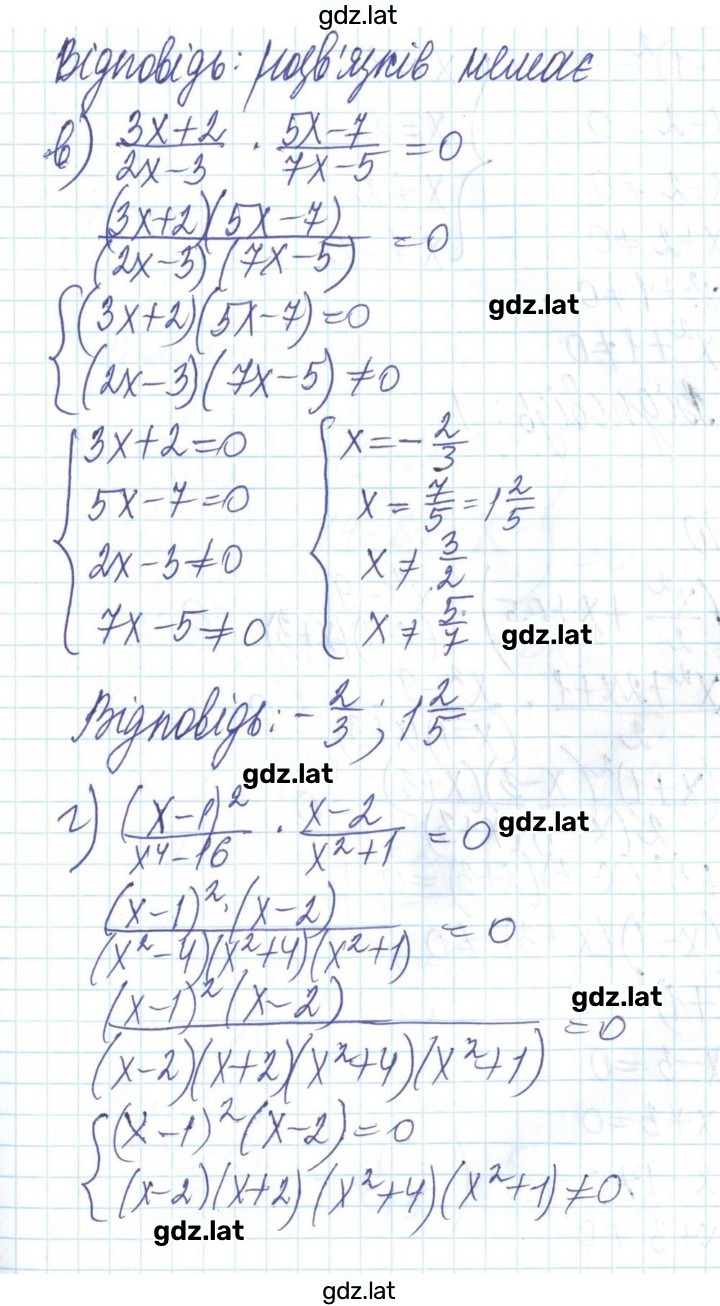 gdz.lat
Відповідь: розв'язків немає
в) (3x+2)/(2x-3) · (5x-7)/(7x-5) = 0
((3x+2)(5x-7))/((2x-3)(7x-5)) = 0
{(3x+2)(5x-7)=0
gdz.lat
(2x-3)(7x-5)≠0
{3x+2=0 {x=-2/3
5x-7=0 x=7/5=1 2/5
2x-3≠0 x≠3/2
7x-5≠0 x≠5/7 gdz.lat
Відповідь: -2/3; 1 2/5
gdz.lat
г) (x-1)²/(x⁴-16) · (x-2)/(x²+1) = 0 gdz.lat
((x-1)²·(x-2))/((x²-4)(x²+4)(x²+1)) = 0
gdz.lat
((x-1)²(x-2))/((x-2)(x+2)(x²+4)(x²+1)) = 0
{(x-1)²(x-2)=0
(x-2)(x+2)(x²+4)(x²+1)≠0.
gdz.lat
gdz.lat